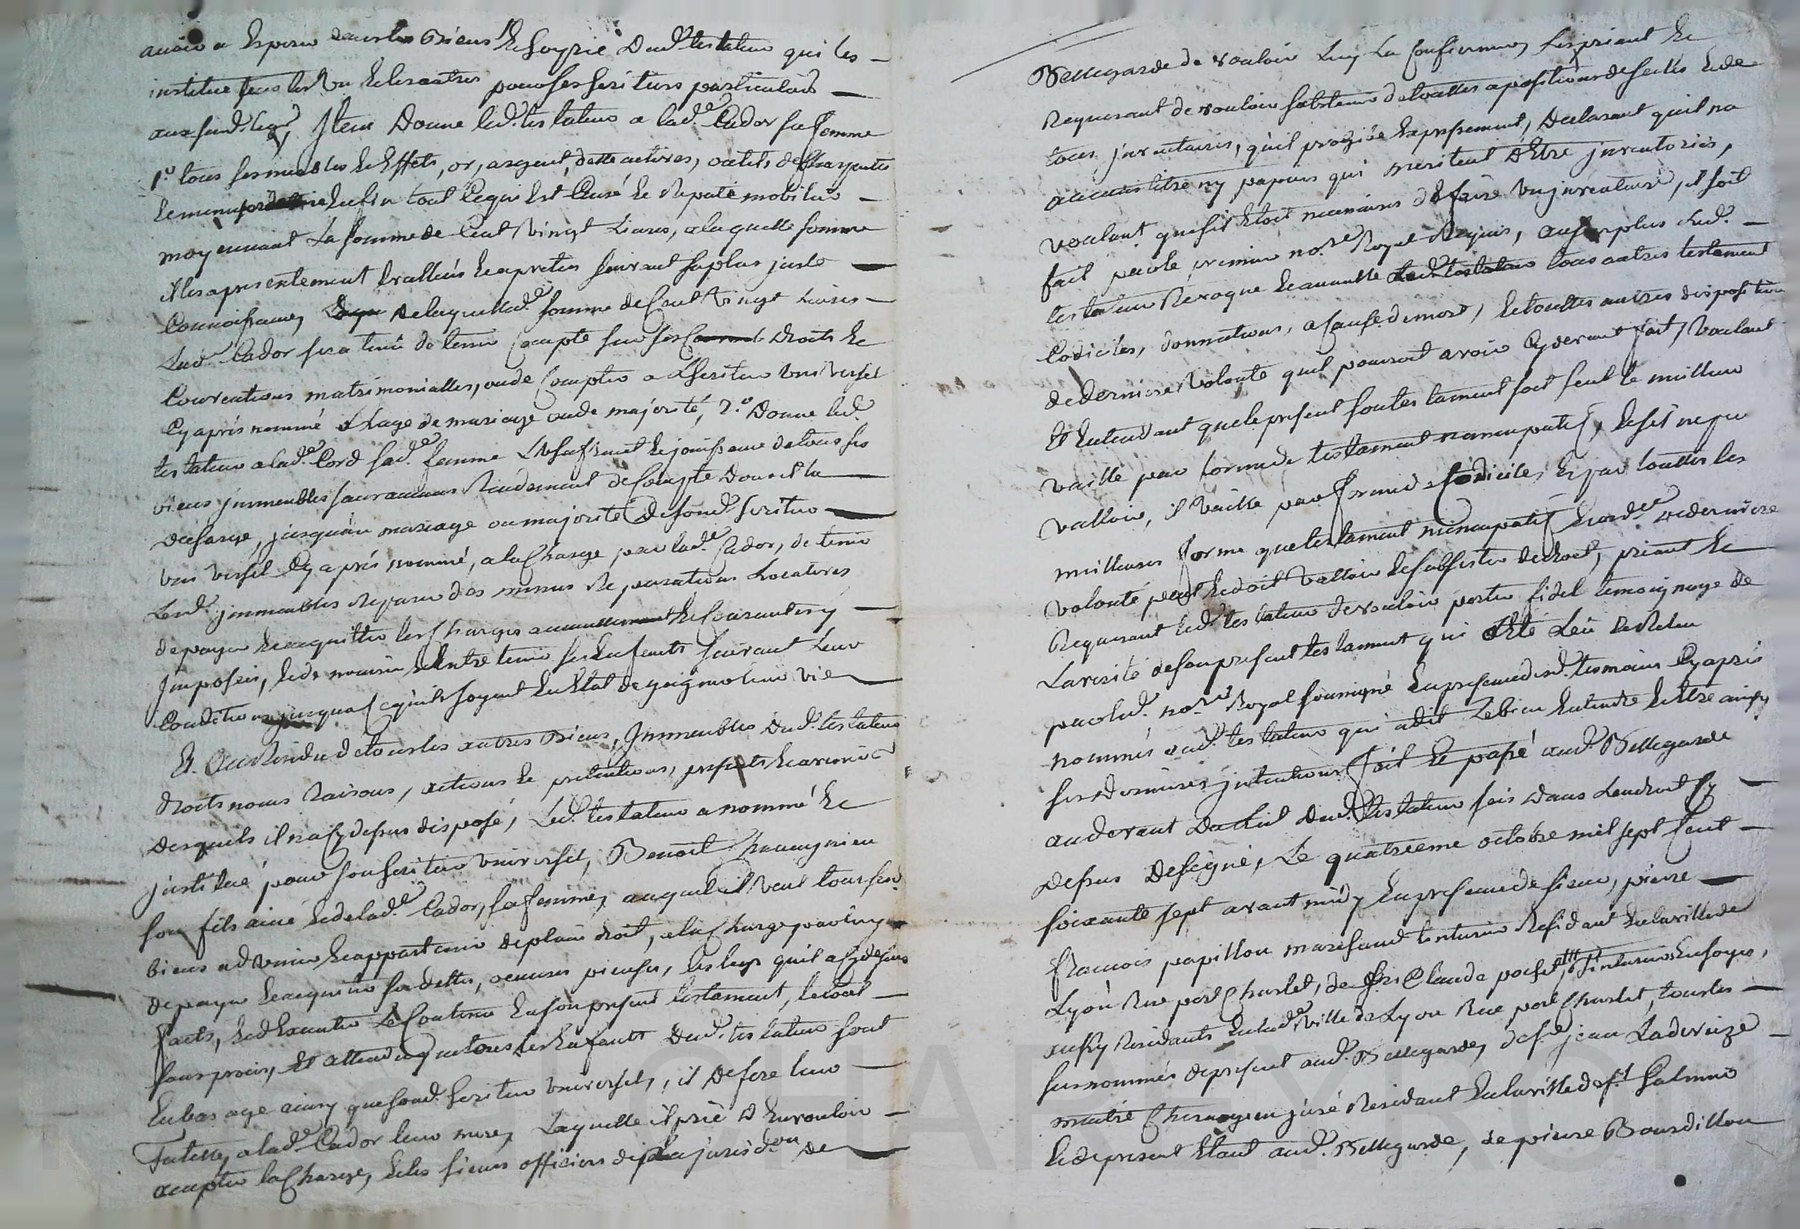 avoir a Esperer dans les Biens et hoyrie dud. testateur qui les
institue tous les uns et les autres pour ses heritiers particuliers
aux fins d. leg, Item Donne led. testateur a lad.e Cador sa femme
1.o tous ses meubles et Effets, or, argent, dette actives, outils de charpente
et menuiserie Enfin tout ce qui Est Censé et Reputé mobilier
moyennant La somme de Cent Vingt Livres, a laquelle somme
il les a presentement Evallués et apretiés suivant sa plus juste
Connoissance, de laquelle d.e somme de Cent Vingt Livres
Lad.e Cador sera tenüe de tenir Compte sur ses Droits et
Conventions matrimonialles, ou de Compter a l'heritier Universel
Cy après nommé a l'age de mariage ou de majorité, 2.o Donne led.
testateur a lad.e Cador sad.e femme L'usufruit et jouissance de tous ses
biens jmmeubles sans aucun Rendement de Compte Dont il la
decharge, jusqu'au mariage ou majorité De sond. heritier
universel Cy après nommé, a la Charge par lad.e Cador, de tenir
Lesd. jmmeubles Reparés des menus Reparations Locatives
de payer et acquitter les Charges et Courantes y
Imposées, et de nourrir et Entretenir ses Enfants suivant Leur
Condition jusqu'a Ce qu'ils soyent En Etat de gaigner leur vie
Et Au Residu de tous les autres Biens, Immeubles Dud. testateur
droits noms Raisons, actions et pretentions, presents et avenir
Desquels il n'a Cy dessus disposé, Led. testateur a nommé et
jnstitué pour son heritier universel, Benoit
son fils ainé et de lad.e Cador, sa femme, auquel il Veut tous sesd.
biens advenir et appartenir de plain droit, a la Charge par luy
de payer et acquitter ses dettes, oeuvres pieuses, les legs qu'il a Cy dessus
faits, et d'Executer Le Contenu En son present testament, le tout
sans procès, Et attendu que tous les Enfants Dud. testateur sont
En bas age ainsy que sond. heritier universel, il Defere leur
Tutelle, a lad.e Cador leur mere, Laquelle il prie D'En vouloir
accepter la Charge, et les sieurs officiers de la jurisd.on de
Bellegarde de vouloir Luy La Confirmer, Les priant et
Requerant de vouloir s'abstenir de touttes apositions de scellés et de
tous jnventaires, qu'il prohibe Expressement, Declarant qu'il n'a
aucuns titre ny papiers qui meritent D'Etre jnventoriés,
voulant que s'il Etoit necessaire de faire un jnventaire, il soit
fait par le premier no.re Royal Requis, au surplus Led.
testateur Revoque et annulle tous autres testament
Codiciles, donnations, a Cause de mort, et touttes autres disposition
de derniere Volonté qu'il pouroit avoir Cy devant fait, Voulant
Et Entendant que le present son testament soit seul le meilleur
vaille par forme de testament nuncupatif, et s'il ne peu
valloir, il Vaille par forme de Codicile, et par touttes les
meilleures forme que testament nuncupatif et ord.e de derniere
volonté peut et doit Valloir et subsister de droit, priant et
Requerant led. testateur de vouloir porter fidel temoignage de
La verité de son present testament qui a Eté Leu et Releu
par led. no.re Royal soussigné En presence desd. temoins Cy après
nommés aud. testateur qui a dit Le bien Entendre et Etre ainsy
ses dernieres jntentions fait Et passé aud. Bellegarde
au devant Du Dud. testateur sis dans L'endroit Cy
dessus Designé, Le quatrieme octobre mil sept Cent
soixante sept avant midy En presence de sieur, pierre
francois papillon marchand teinturier Residant En la ville de
Lyon Rue port Charlet, de s.r Claude pochet, teinturier En soye,
aussy Residants En lad.e ville de Lyon Rue port Charlet, tous les
susnommés de present aud. Bellegarde, de s.r jean Laderrize
maitre Chirurgien juré Residant En la ville de s.t Galmier
et de present Etant aud. Bellegarde, de pierre Bourdillon